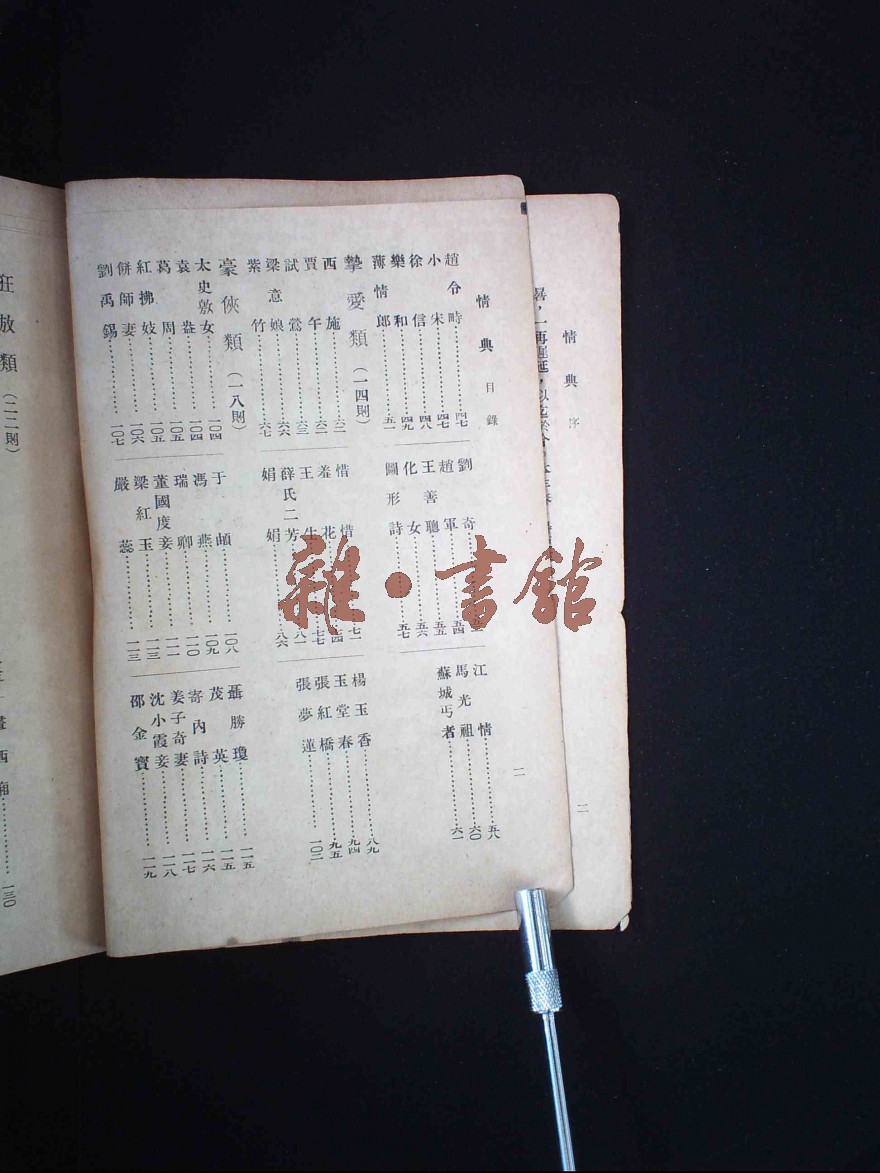 情典 目錄
趙令畤……四七
小宋……四七
徐信……四八
樂和……四九
薄情郎……五一
劉奇
趙軍……五四
王善聰……五五
化女……五六
圖形詩……五七
江情……五八
馬光祖……六〇
蘇城丐者……六一
摯愛類(一四則)
西施……六二
賈午……六二
試鶯……六三
梁意娘……六六
紫竹……六七
惜惜……七一
羞花……七四
王生……七七
薛氏二芳……八一
娟娟……八六
楊玉香……八九
玉堂春……九四
張紅橋……九五
張夢蓮……一〇三
豪俠類(一八則)
太史敫女……一〇四
袁盎……一〇四
葛周……一〇五
紅拂妓……一〇五
餅師妻……一〇六
劉禹錫……一〇七
于頔……一〇八
馮燕……一〇九
瑞卿……一一〇
董國度妾……一一一
梁紅玉……一一三
嚴蕊……一一三
聶勝瓊……一一五
茂英……一一五
寄內詩……一一六
姜子奇妻……一一七
沈小霞妾……一一八
邵金寶……一一九
二
情典 序
二
狂放類(二二則)
西廂……一三〇
雜·書館